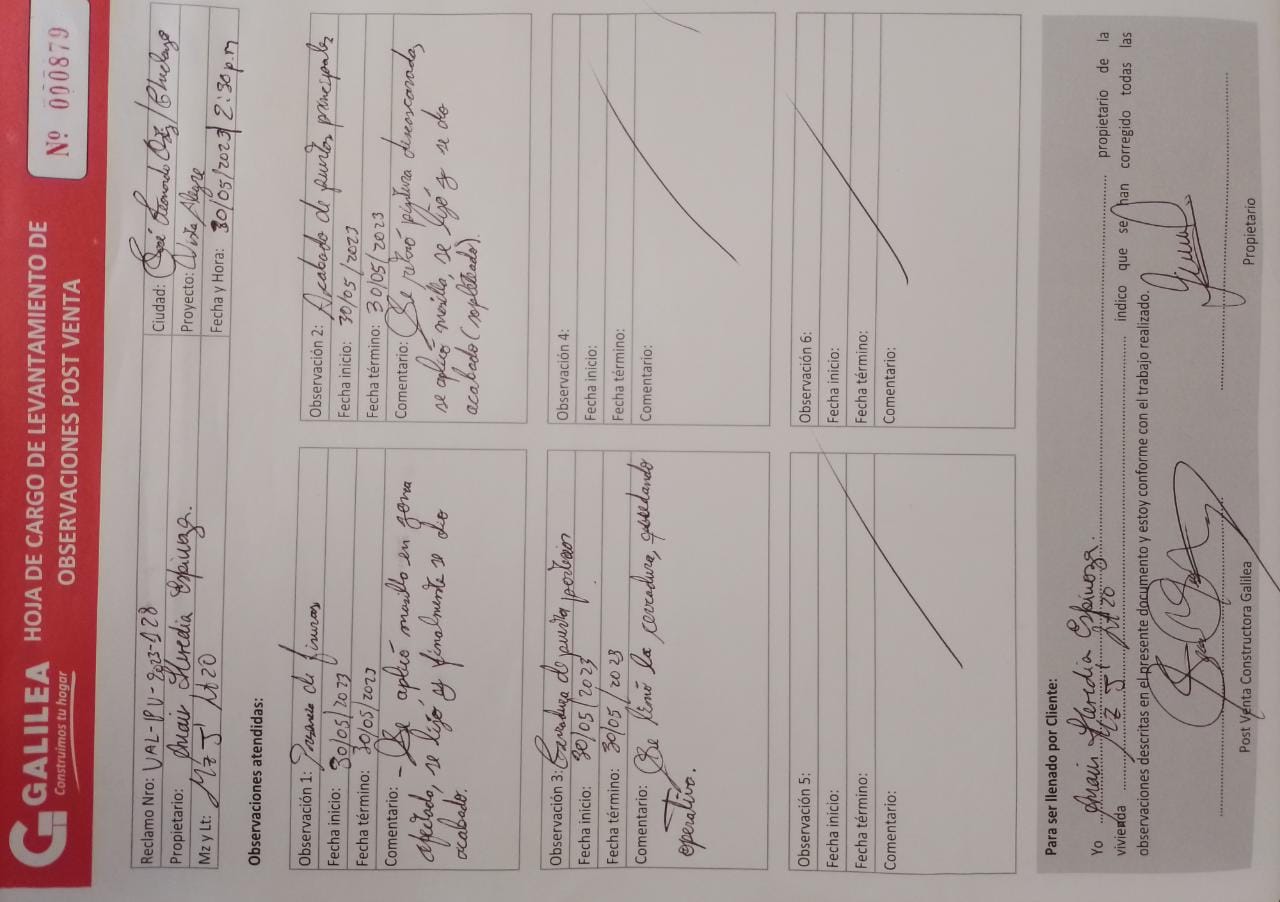 GALILEA
Construimos tu hogar
HOJA DE CARGO DE LEVANTAMIENTO DE
OBSERVACIONES POST VENTA
Nº 000879
Reclamo Nro: VAL-IPV-2023-128
Ciudad: José Leonardo Ortiz / Chiclayo
Propietario: Heredia Espinoza.
Proyecto: Vista Alegre
Mz y Lt: Mz J' Lt 20
Fecha y Hora: 30/05/2023 / 2:30 p.m
Observaciones atendidas:
Observación 1: Presencia de fisuras
Fecha inicio: 30/05/2023
Fecha término: 30/05/2023
Comentario: - Se aplicó masilla en zona
afectada, se lijó y finalmente se dio
acabado.
Observación 2: Acabado de puertas principales
Fecha inicio: 30/05/2023
Fecha término: 30/05/2023
Comentario: Se retiró pintura descascarada,
se aplicó masilla, se lijó y se do
acabado (sopleteado).
Observación 3: Cerradura de puerta posterior
Fecha inicio: 30/05/2023
Fecha término: 30/05/2023
Comentario: Se limó la cerradura, quedando
operativo.
Observación 4:
Fecha inicio:
Fecha término:
Comentario:
Observación 5:
Fecha inicio:
Fecha término:
Comentario:
Observación 6:
Fecha inicio:
Fecha término:
Comentario:
Para ser llenado por Cliente:
Yo Heredia Espinoza. propietario de la
vivienda Mz J' Lt 20 indico que se han corregido todas las
observaciones descritas en el presente documento y estoy conforme con el trabajo realizado.
Post Venta Constructora Galilea
Propietario